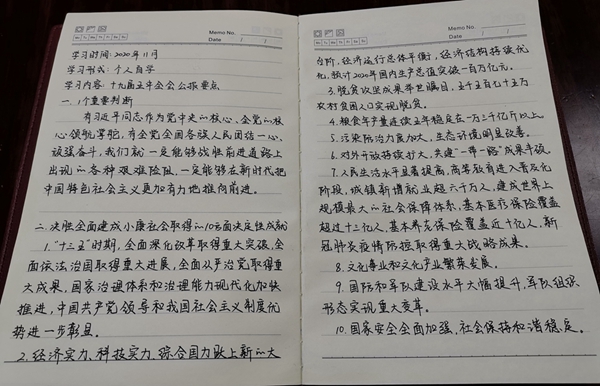 Memo No.
Mo Tu We Th Fr Sa Su
Date / /
学习时间: 2020年11月
学习形式: 个人自学
学习内容: 十九届五中全会公报要点
一、1个重要判断
有习近平同志作为党中央的核心、全党的核
心领航掌舵,有全党全国各族人民团结一心、
顽强奋斗,我们就一定能够战胜前进道路上
出现的各种艰难险阻,一定能够在新时代把
中国特色社会主义更加有力地推向前进。
二、决胜全面建成小康社会取得的10方面决定性成就
1."十三五"时期,全面深化改革取得重大突破,全
面依法治国取得重大进展,全面从严治党取得重
大成果,国家治理体系和治理能力现代化加快
推进,中国共产党领导和我国社会主义制度优
势进一步彰显。
2.经济实力、科技实力、综合国力跃上新的大
Memo No.
Mo Tu We Th Fr Sa Su
Date / /
台阶,经济运行总体平衡,经济结构持续优
化,预计2020年国内生产总值突破一百万亿元。
3.脱贫攻坚成果举世瞩目,五千五百七十五万
农村贫困人口实现脱贫。
4.粮食年产量连续五年稳定在一万三千亿斤以上。
5.污染防治力度加大,生态环境明显改善。
6.对外开放持续扩大,共建"一带一路"成果丰硕。
7.人民生活水平显著提高,高等教育进入普及化
阶段,城镇新增就业超六千万人,建成世界上
规模最大的社会保障体系,基本医疗保险覆盖
超过十三亿人,基本养老保险覆盖近十亿人,新
冠肺炎疫情防控取得重大战略成果。
8.文化事业和文化产业繁荣发展。
9.国防和军队建设水平大幅提升,军队组织
形态实现重大变革。
10.国家安全全面加强,社会保持和谐稳定。